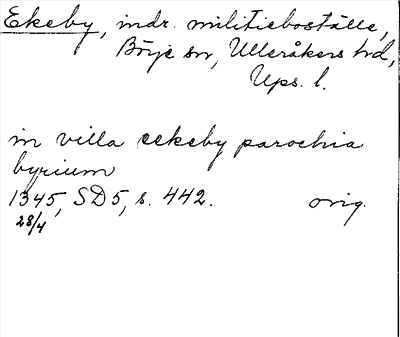 Ekeby, mdr. militieboställe,
Börje sn, Ulleråkers hd,
Ups. l.
in villa eekeby parochia
byrium
1345, SD5, s. 442. orig.
28/4